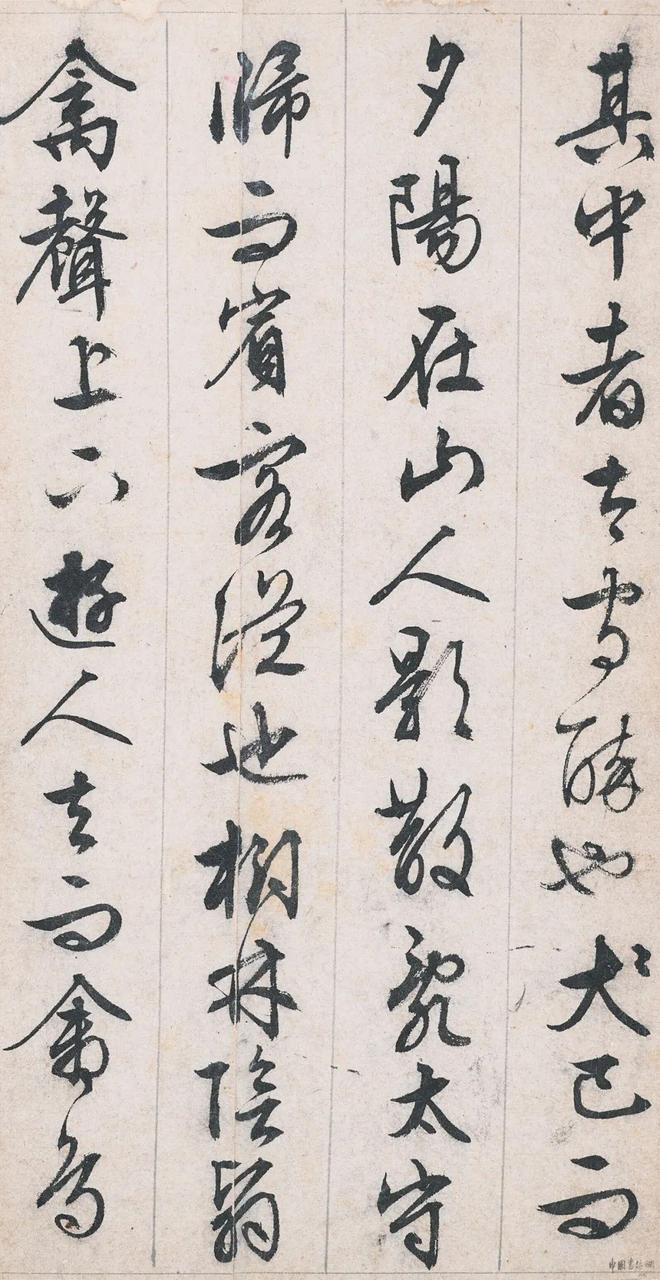 其中者太守醉也大已而
夕陽在山人影散亂太守
歸而賓客從也樹林陰翳
禽聲上下遊人去而禽鳥
中國書法網